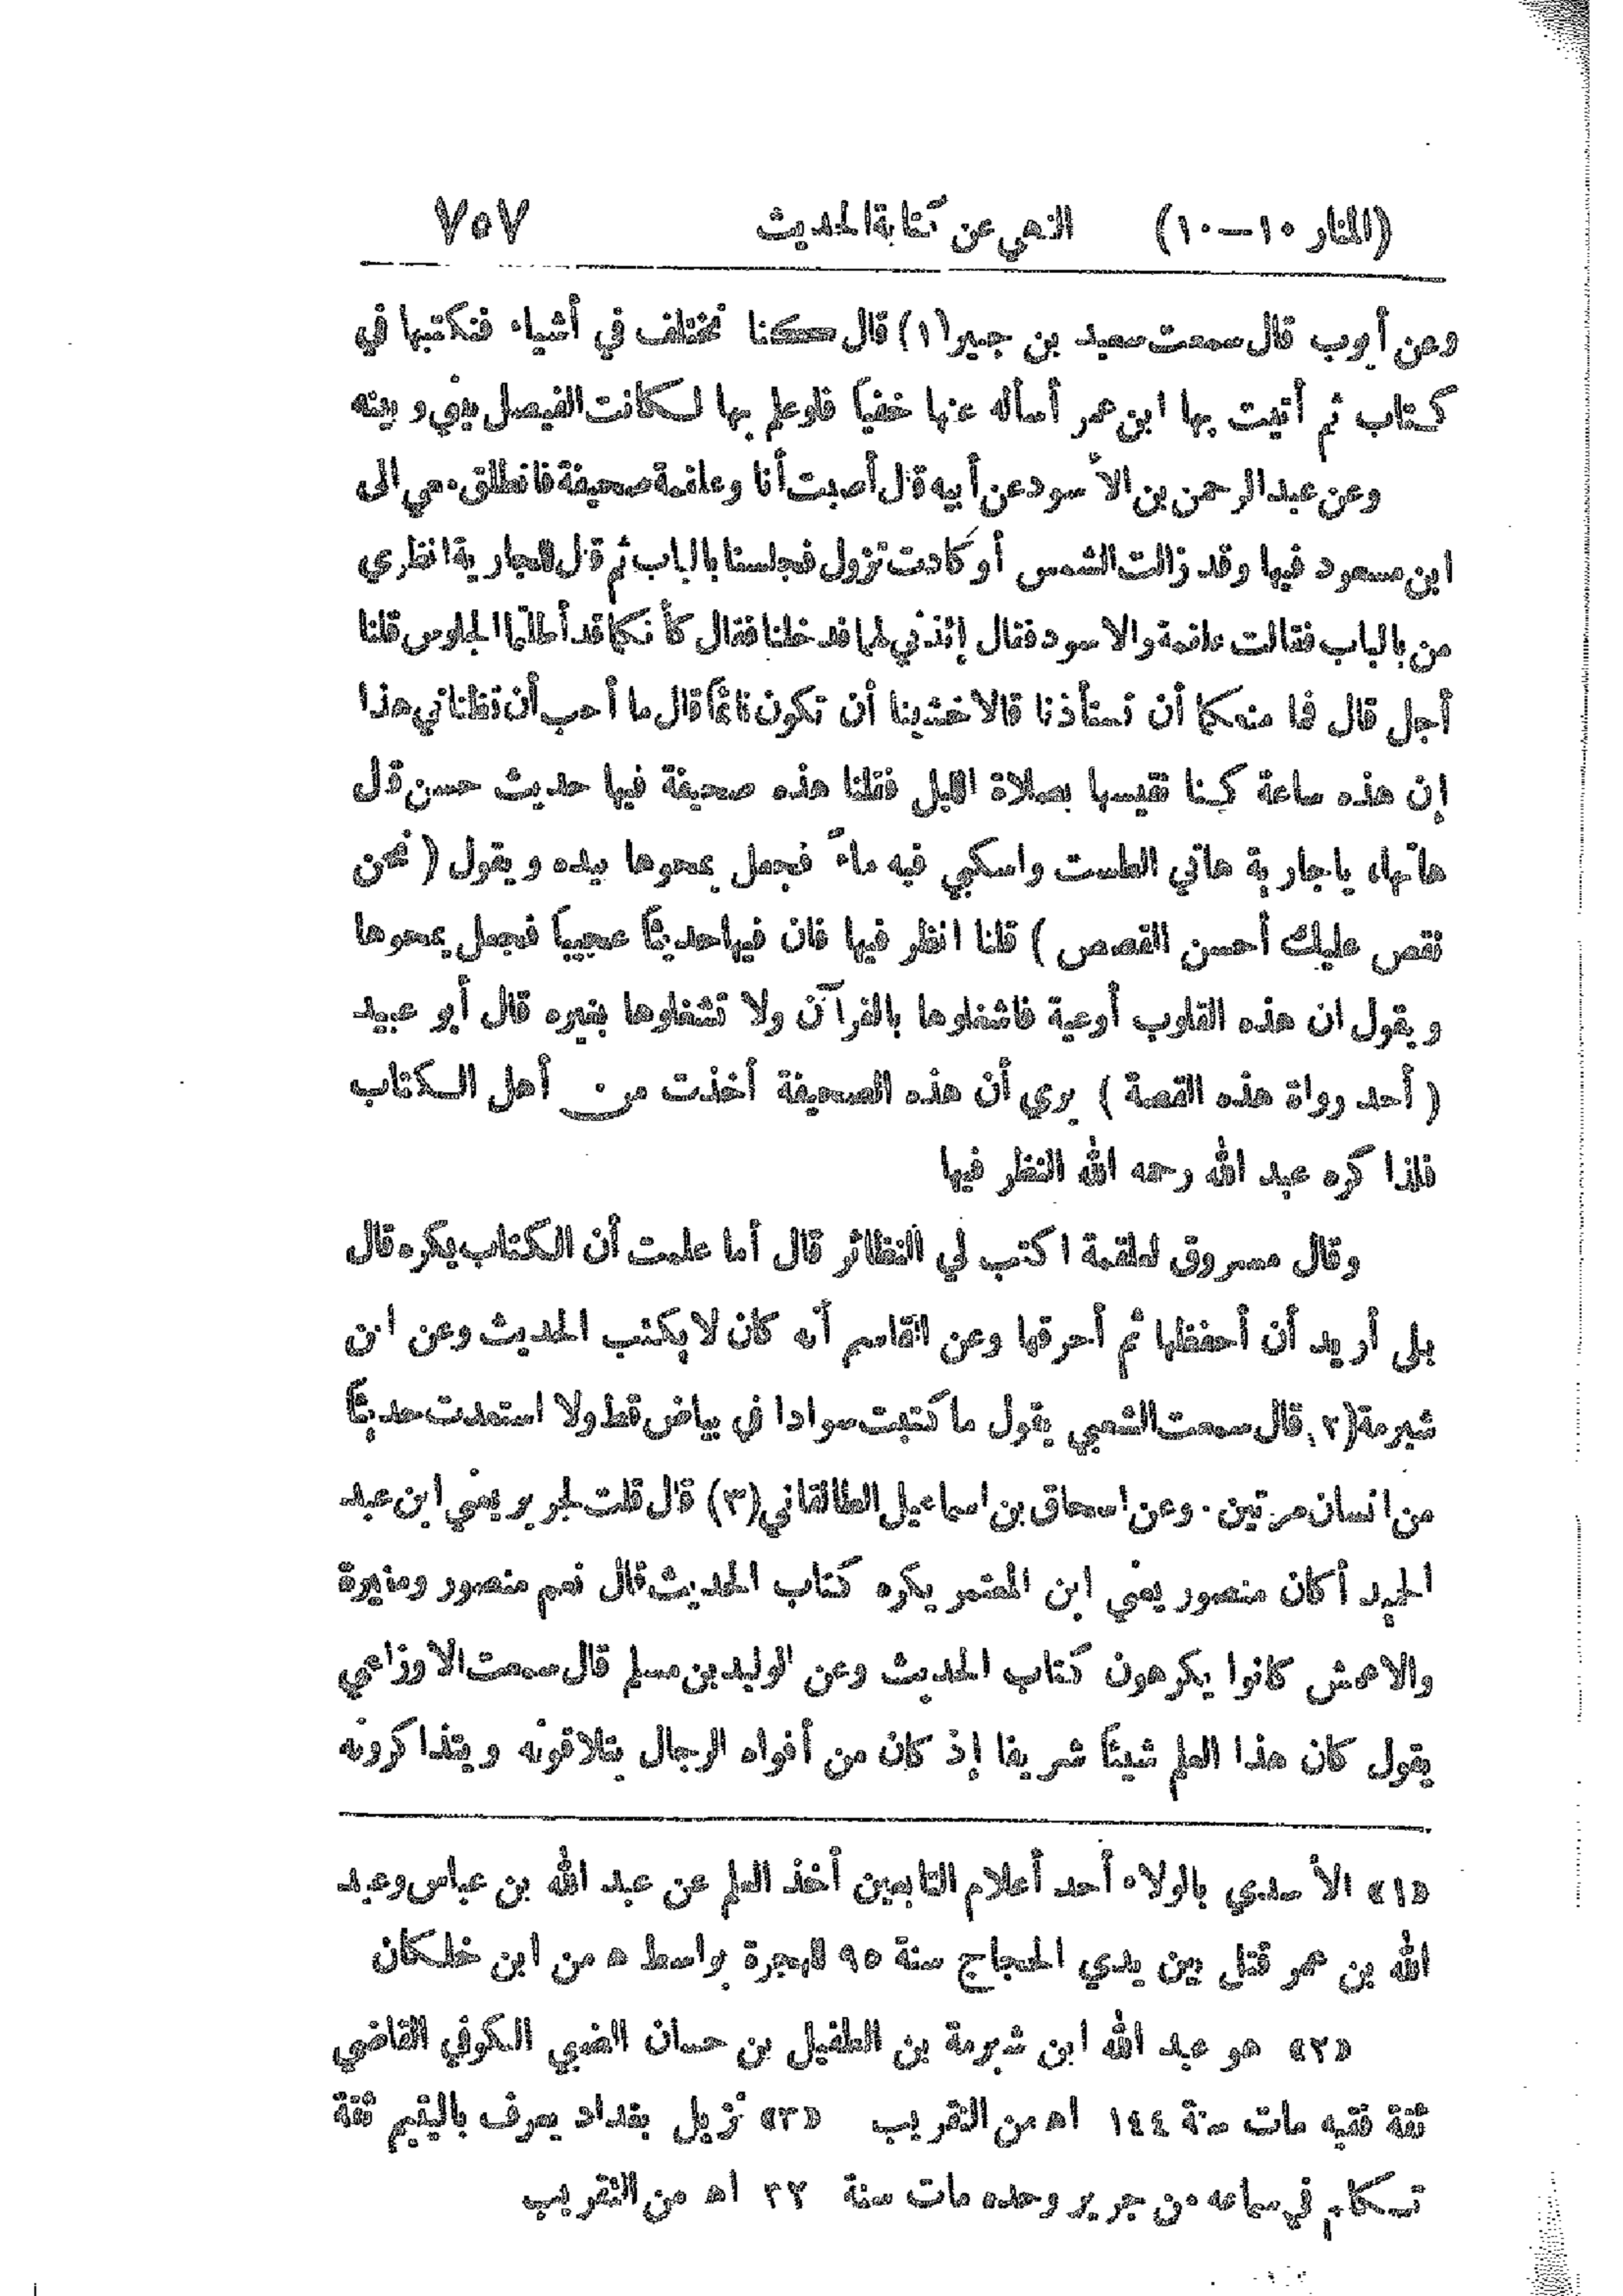 (المنار ١٠—١٠) النهي عن كتابة الحديث ٧٥٧
وعن أيوب قال سمعت سعيد بن جبير(١) قال كنا نختلف في أشياء فنكتبها في
كتاب ثم أتيت بها ابن عمر أسأله عنها خفياً فلو علم بها لكانت الفيصل بيني وبينه
وعن عبد الرحمن بن الأسود عن أبيه قال أصبت أنا وعلقمة صحيفة فانطلق معي الى
ابن مسعود فيها وقد زالت الشمس أو كادت تزول فجلسنا بالباب ثم قال للجارية انظري
من بالباب فقالت علقمة والاسود فقال إئذني لهما فدخلنا فقال كأنكما قد أطلتما الجلوس قلنا
أجل قال فما منعكما أن تستأذنا قالا خشينا أن تكون نائماً قال ما أحب أن تظنا بي هذا
إن هذه ساعة كنا نقيسها بصلاة الليل فقلنا هذه صحيفة فيها حديث حسن قال
هاتها، يا جارية هاتي الطست واسكبي فيه ماءً فجعل يمحوها بيده ويقول ( نحن
نقص عليك أحسن القصص ) قلنا انظر فيها فان فيها حديثاً عجيباً فجعل يمحوها
ويقول ان هذه القلوب أوعية فاشغلوها بالقرآن ولا تشغلوها بغيره قال أبو عبيد
( أحد رواة هذه القصة ) يرى أن هذه الصحيفة أخذت من أهل الكتاب
فلذا كره عبد الله رحمه الله النظر فيها
وقال مسروق لعلقمة اكتب لي النظائر قال أما علمت أن الكتاب يكره قال
بلى أريد أن أحفظها ثم أحرقها وعن القاسم أنه كان لا يكتب الحديث وعن ابن
شبرمة(٢) قال سمعت الشعبي يقول ما كتبت سوادا في بياض قط ولا استعدت حديثاً
من انسان مرتين . وعن اسحاق بن اسماعيل الطالقاني(٣) قال قلت لجرير يعني ابن عبد
الحميد أكان منصور يعني ابن المعتمر يكره كتاب الحديث قال نعم منصور ومغيرة
والاعمش كانوا يكرهون كتاب الحديث وعن الوليد بن مسلم قال سمعت الاوزاعي
يقول كان هذا العلم شيئاً شريفا إذ كان من أفواه الرجال يتلاقونه ويتذاكرونه
«١» الأسدي بالولاء أحد أعلام التابعين أخذ العلم عن عبد الله بن عباس وعبد
الله بن عمر قتل بين يدي الحجاج سنة ٩٥ للهجرة بواسط ه من ابن خلكان
«٢» هو عبد الله ابن شبرمة بن الطفيل بن حسان الضبي الكوفي القاضي
ثقة فقيه مات سنة ١٤٤ اه من التقريب «٣» نزيل بغداد يعرف باليتيم ثقة
تكلم في سماعه من جرير وحده مات سنة ٢٣ اه من التقريب